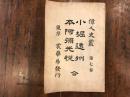 偉人史叢 第七卷
小堀遠州
本阿彌光悦 合
東京 裳華房發行